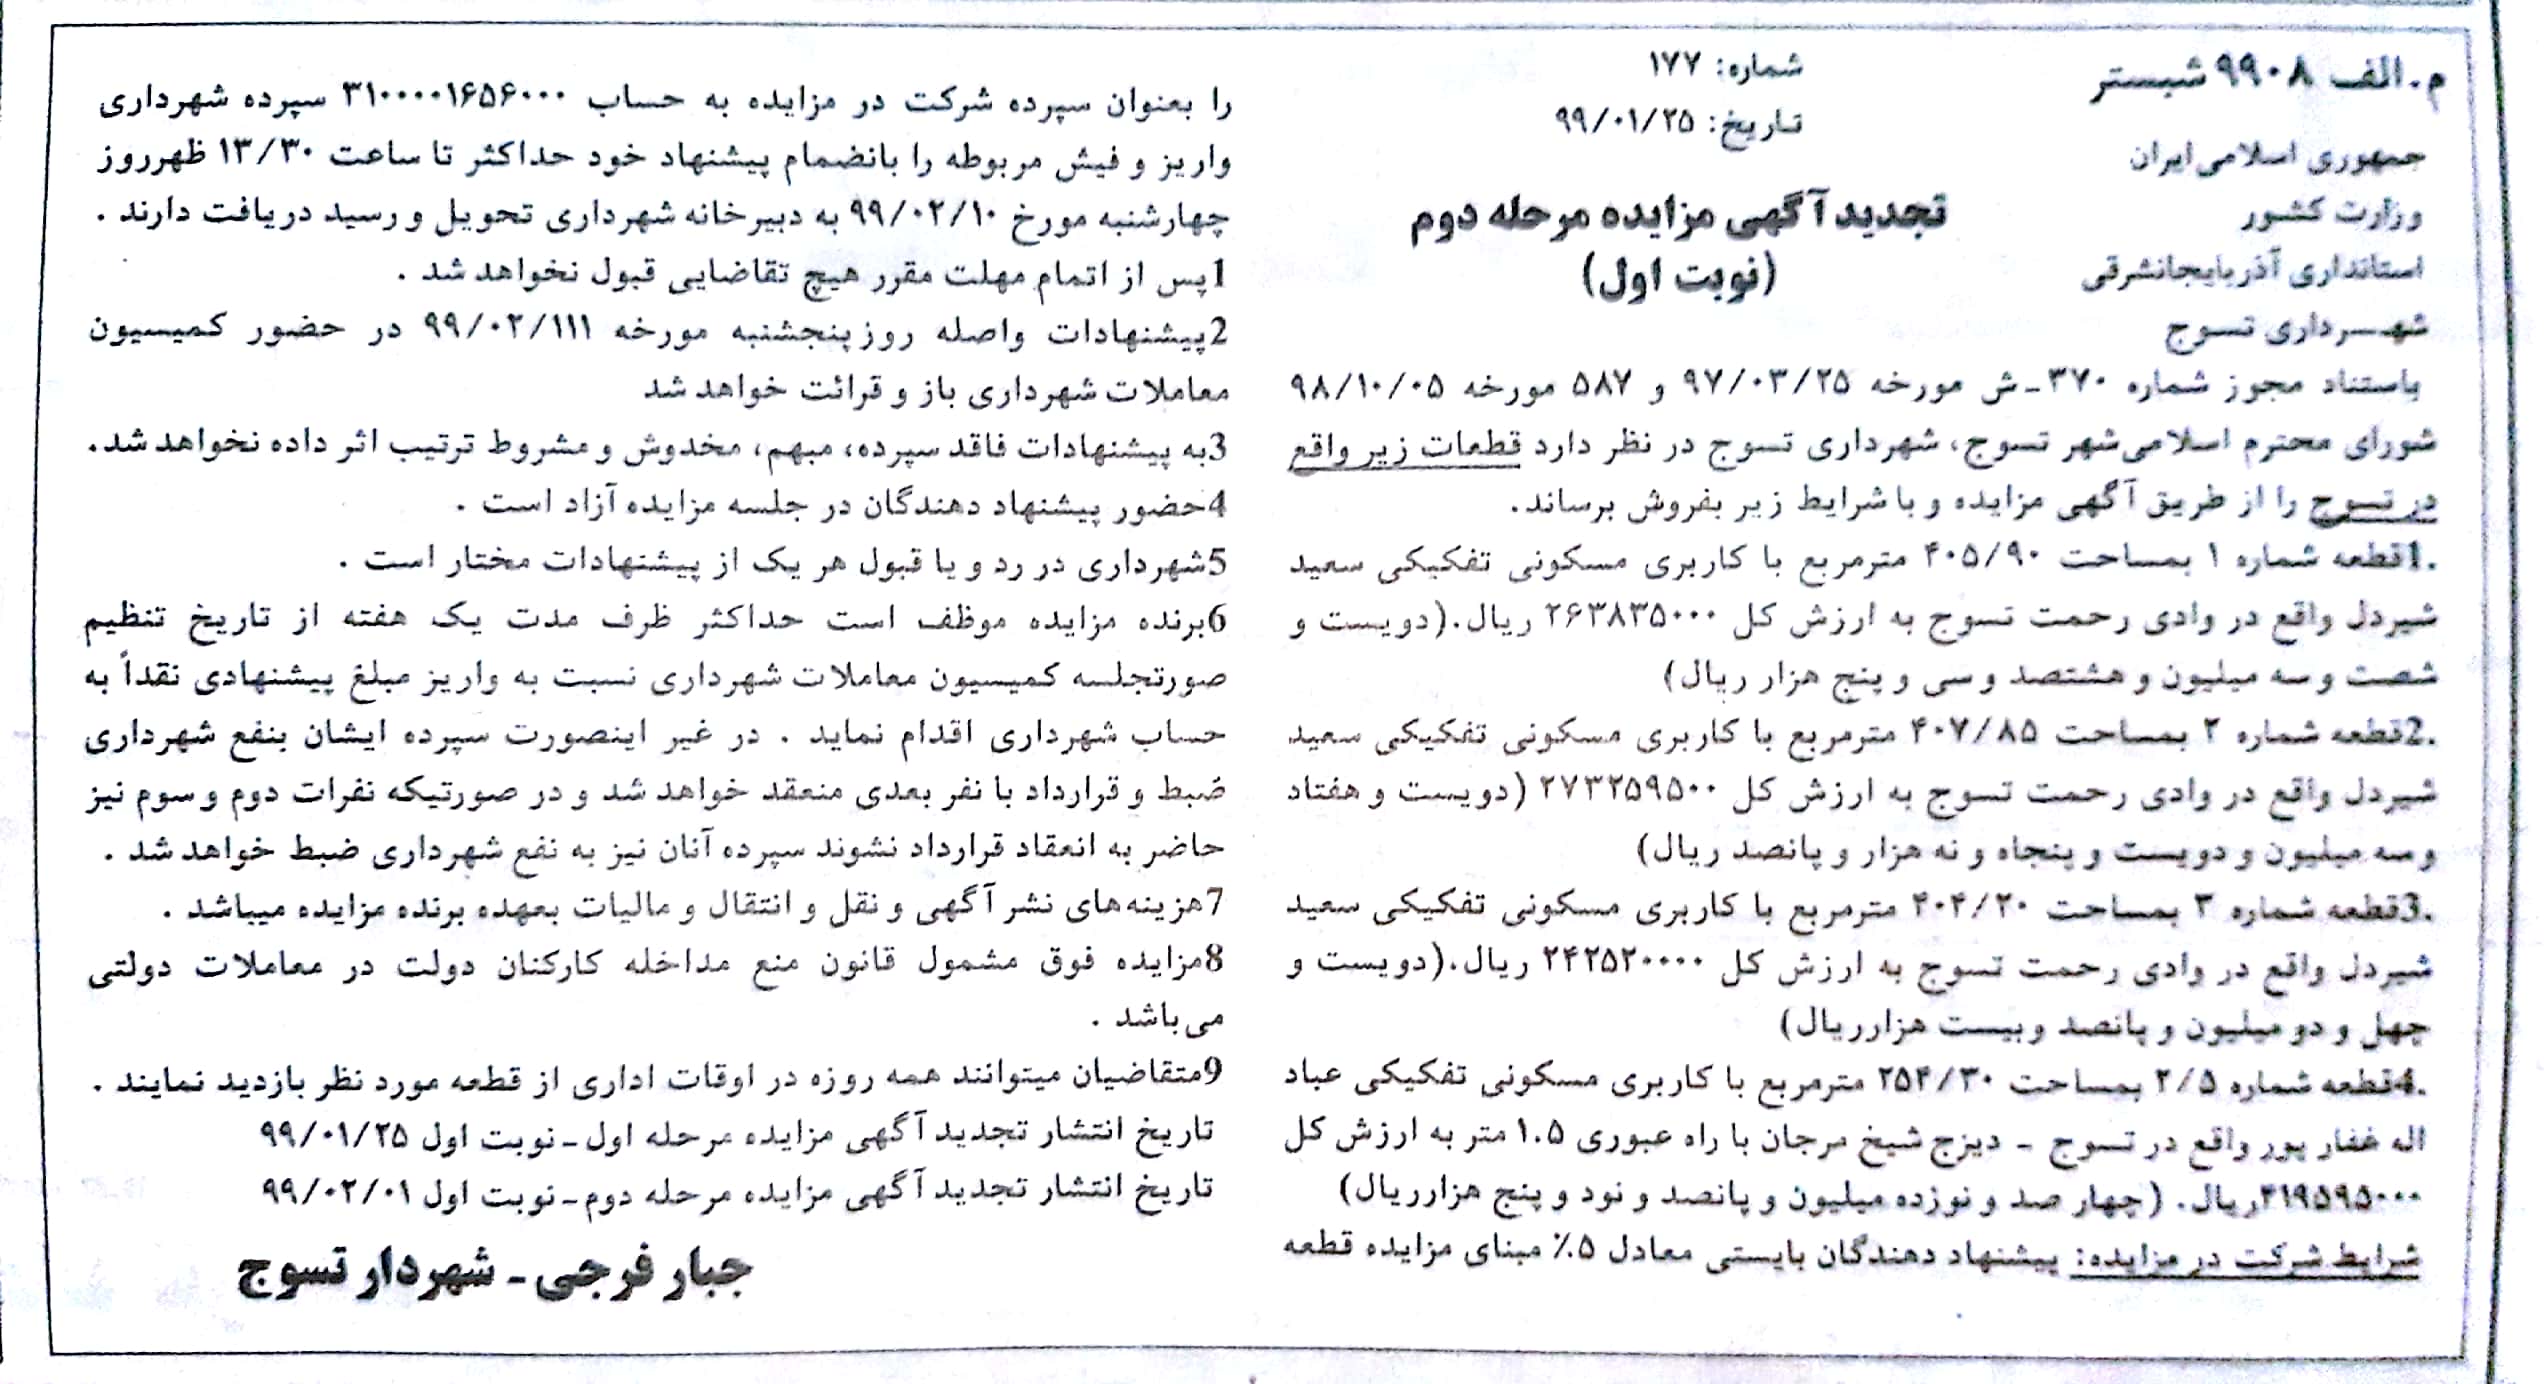 م.الف ۹۹۰۸ شبستر
شماره: ۱۷۷
تاریخ: ۹۹/۰۱/۲۵
جمهوری اسلامی ایران
وزارت کشور
استانداری آذربایجانشرقی
شهرداری تسوج
تجدید آگهی مزایده مرحله دوم
(نوبت اول)
باستناد مجوز شماره ۳۷۰-ش مورخه ۹۷/۰۳/۲۵ و ۵۸۷ مورخه ۹۸/۱۰/۰۵
شورای محترم اسلامی شهر تسوج، شهرداری تسوج در نظر دارد قطعات زیر واقع
در تسوج را از طریق آگهی مزایده و با شرایط زیر بفروش برساند.
1.قطعه شماره ۱ بمساحت ۴۰۵/۹۰ مترمربع با کاربری مسکونی تفکیکی سعید
شیردل واقع در وادی رحمت تسوج به ارزش کل ۲۶۳۸۳۵۰۰۰ ریال.(دویست و
شصت و سه میلیون و هشتصد و سی و پنج هزار ریال)
2.قطعه شماره ۲ بمساحت ۴۰۷/۸۵ مترمربع با کاربری مسکونی تفکیکی سعید
شیردل واقع در وادی رحمت تسوج به ارزش کل ۲۷۳۲۵۹۵۰۰ (دویست و هفتاد
و سه میلیون و دویست و پنجاه و نه هزار و پانصد ریال)
3.قطعه شماره ۳ بمساحت ۴۰۴/۲۰ مترمربع با کاربری مسکونی تفکیکی سعید
شیردل واقع در وادی رحمت تسوج به ارزش کل ۲۴۲۵۲۰۰۰۰ ریال.(دویست و
چهل و دو میلیون و پانصد و بیست هزارریال)
4.قطعه شماره ۲/۵ بمساحت ۲۵۴/۳۰ مترمربع با کاربری مسکونی تفکیکی عباد
اله غفار پور واقع در تسوج - دیزج شیخ مرجان با راه عبوری ۱.۵ متر به ارزش کل
۴۱۹۵۹۵۰۰۰ریال. (چهار صد و نوزده میلیون و پانصد و نود و پنج هزارریال)
شرایط شرکت در مزایده: پیشنهاد دهندگان بایستی معادل ۵٪ مبنای مزایده قطعه
را بعنوان سپرده شرکت در مزایده به حساب ۳۱۰۰۰۰۱۶۵۶۰۰۰ سپرده شهرداری
واریز و فیش مربوطه را بانضمام پیشنهاد خود حداکثر تا ساعت ۱۳/۳۰ ظهرروز
چهارشنبه مورخ ۹۹/۰۲/۱۰ به دبیرخانه شهرداری تحویل و رسید دریافت دارند .
1پس از اتمام مهلت مقرر هیچ تقاضایی قبول نخواهد شد .
2پیشنهادات واصله روزپنجشنبه مورخه ۹۹/۰۲/۱۱۱ در حضور کمیسیون
معاملات شهرداری باز و قرائت خواهد شد
3به پیشنهادات فاقد سپرده، مبهم، مخدوش و مشروط ترتیب اثر داده نخواهد شد.
4حضور پیشنهاد دهندگان در جلسه مزایده آزاد است .
5شهرداری در رد و یا قبول هر یک از پیشنهادات مختار است .
6برنده مزایده موظف است حداکثر ظرف مدت یک هفته از تاریخ تنظیم
صورتجلسه کمیسیون معاملات شهرداری نسبت به واریز مبلغ پیشنهادی نقداً به
حساب شهرداری اقدام نماید . در غیر اینصورت سپرده ایشان بنفع شهرداری
ضبط و قرارداد با نفر بعدی منعقد خواهد شد و در صورتیکه نفرات دوم و سوم نیز
حاضر به انعقاد قرارداد نشوند سپرده آنان نیز به نفع شهرداری ضبط خواهد شد .
7هزینه‌های نشر آگهی و نقل و انتقال و مالیات بعهده برنده مزایده میباشد .
8مزایده فوق مشمول قانون منع مداخله کارکنان دولت در معاملات دولتی
می‌باشد .
9متقاضیان میتوانند همه روزه در اوقات اداری از قطعه مورد نظر بازدید نمایند .
تاریخ انتشار تجدید آگهی مزایده مرحله اول-نوبت اول ۹۹/۰۱/۲۵
تاریخ انتشار تجدید آگهی مزایده مرحله دوم-نوبت اول ۹۹/۰۲/۰۱
جبار فرجی- شهردار تسوج